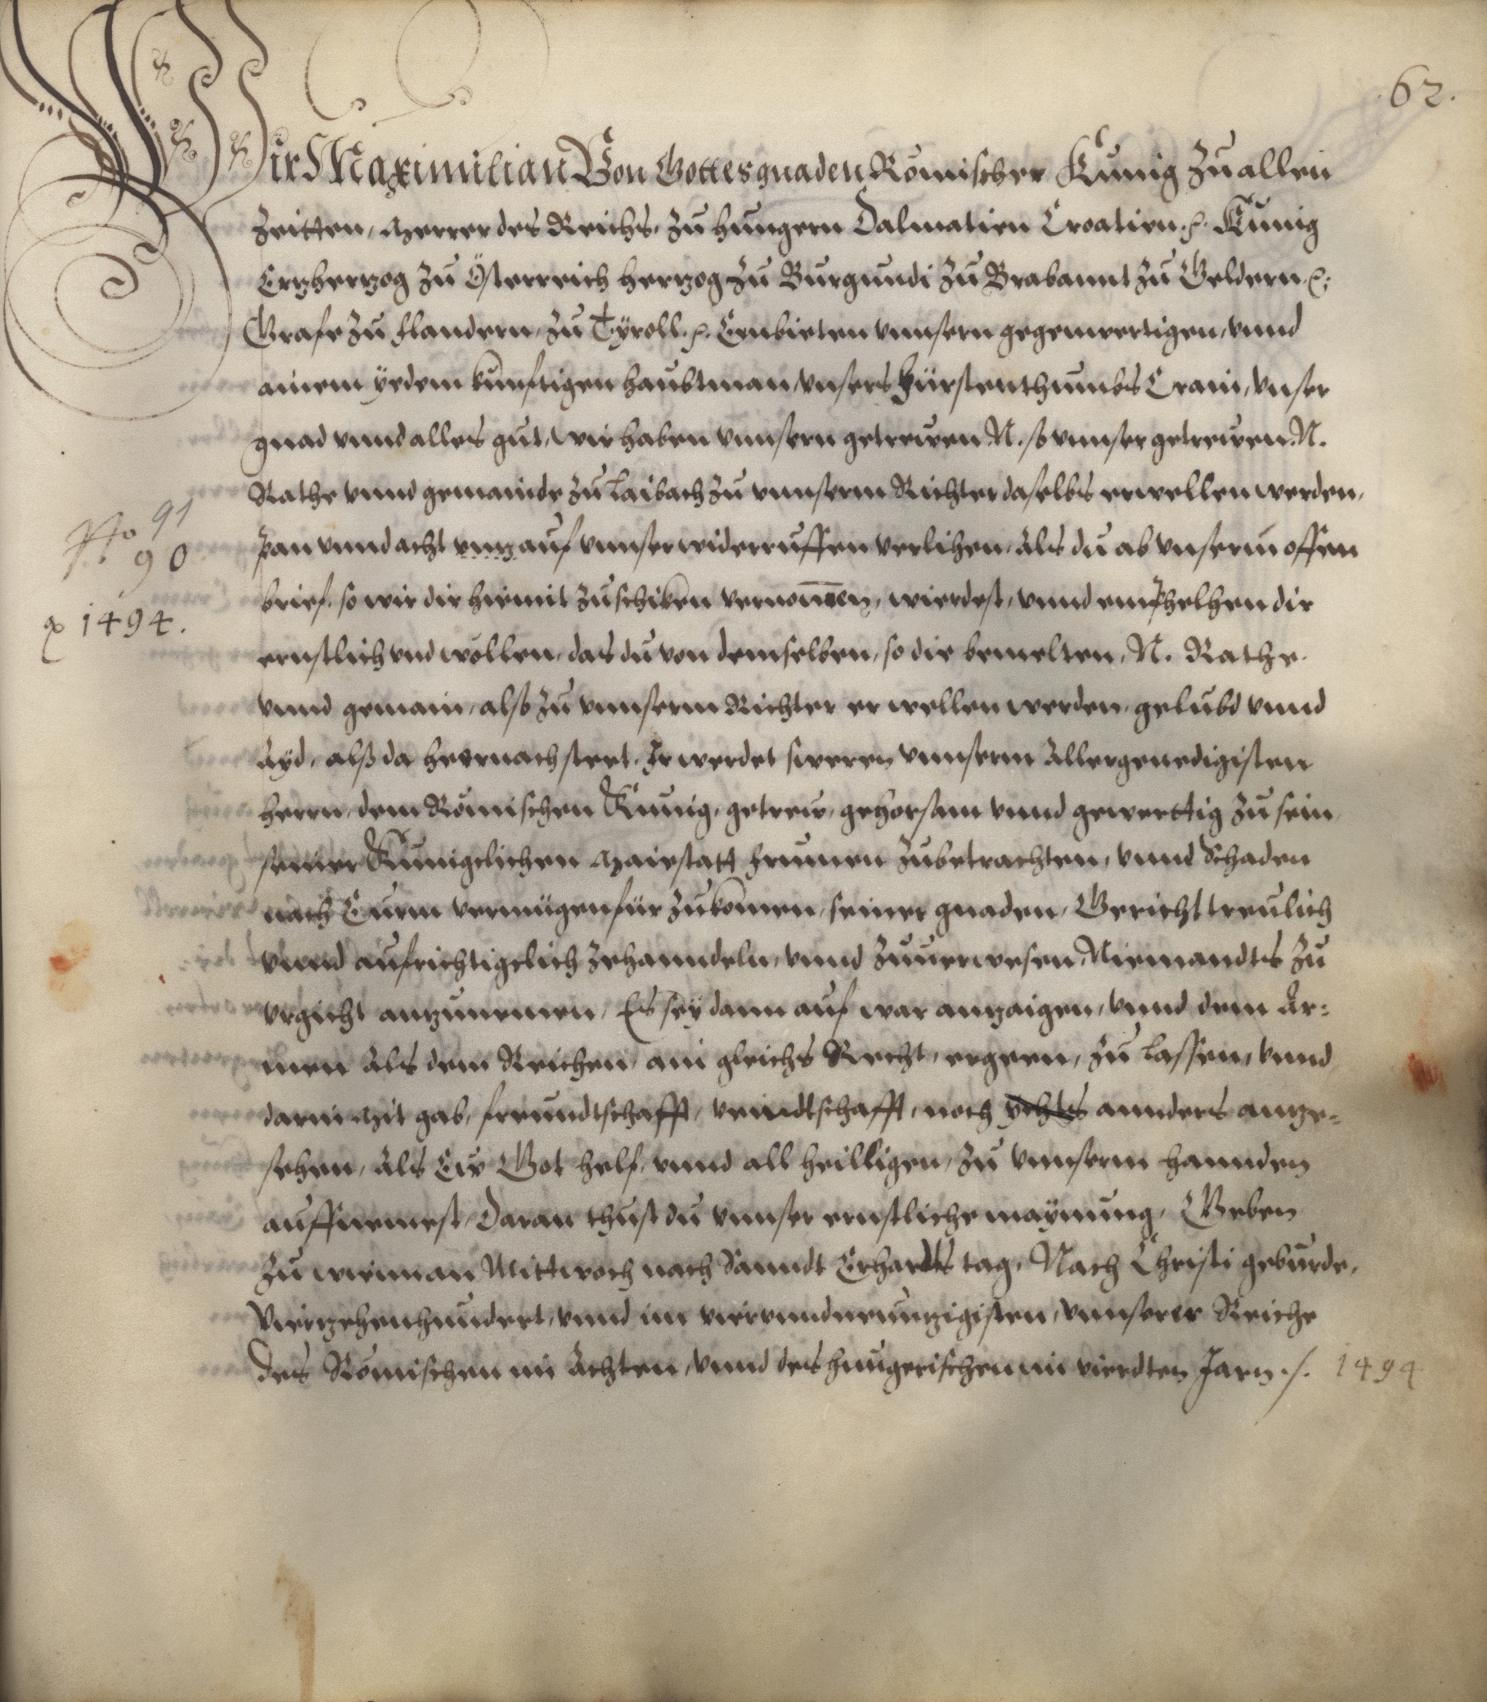 .62.
Wir Maximilian Von Gottes gnaden Römischer Künig Zu allen
Zeitten, Merrer des Reichs, Zu Hungern Dalmatien Croatien .p. Künig
Ertzhertzog Zu Österreich Hertzog Zu Burgundi Zu Brabannt Zu Geldern .p.
Grafe Zu Flandern, Zu Tÿroll .p. Embieten vnnsern gegenwertigen, vnnd
ainem ÿedem künfftigen Haubtman, vnsers Fürstenthumbs Crain, vnser
gnad vnnd alles gut, wir haben vnnsern getrewen N. so vnnser getrewen N.
Rathe vnnd gemainde Zu Laibach Zu vnnserm Richter daselbs erwellen werden,
No 91
90
Pan vnnd acht vntz auf vnnser widerruffen verlihen, Als du ab vnserm offen
brief, so wir dir hiemit Zuschiken vernemen, wierdest, vnnd emphelhen dir
1494.
ernstlich vnd wöllen, das du von demselben, so die bemelten, N. Rathe
vnnd gemain, alß Zu vnnserm Richter erwellen werden, gelubd vnnd
Aÿd, alß da hernach steet. Ir werdet sweren vnnserm Allergenedigisten
Herrn, dem Römischen Künig, getrew, gehorsam vnnd gewerttig Zu sein,
seiner Künigclichen Maiestatt frumen Zubetrachten, vnnd Schaden
nach Eurm vermügen für Zukomen, seiner gnaden, Gericht treulich
vnnd aufrichtigclich Zehanndeln, vnnd Zuuerwesen, Niemandts Zu
vrgicht antzunemen, Es seÿ dann auf war antzaigen, vnnd dem Ar=
men Als dem Reichen, ain gleichs Recht, ergeen, Zu lassen, vnnd
darin Mit gab, freundtschafft, veindtschafft, noch ichts annders ange=
sehen, Als Eur Got helf, vnnd all Heilligen, Zu vnnserm hannden
auffnemest, Daran thust du vnnser ernstliche maÿnung, Geben
Zu wienn an Mittwoch nach Sanndt Erharts tag, Nach Christi geburde,
Viertzehenhundert, vnnd im viervndneuntzigisten, vnnserer Reiche
des Römischen im Achten, vnnd des Hungerischen im vierdten Jarn ./. 1494